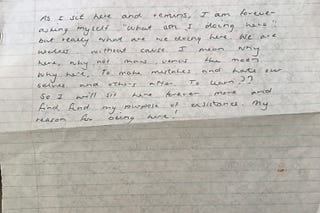 As I sit here and remins, I am forever
asking myself "what am I doing here"
but really what are we doing here. We are
without cause I mean why
here, why not mars, venus the moon
why here. To make mistakes, and hate our
selves, and others after. To learn??
So I will sit here forever more and
find find my purpose of existance. My
reason for being here!